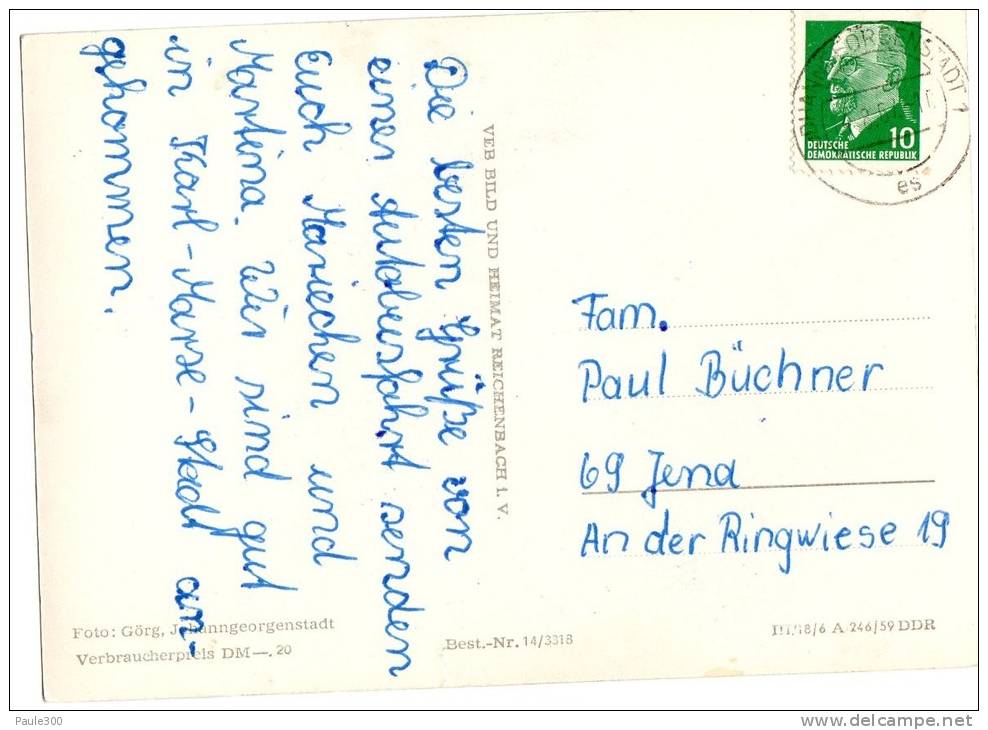 Die besten Grüße von
einer Autobusfahrt senden
Euch Mariechen und
Martina. Wir sind gut
in Karl-Marx-Stadt an-
gekommen.
VEB BILD UND HEIMAT REICHENBACH I. V.
DEUTSCHE
DEMOKRATISCHE REPUBLIK
10
es
Fam.
Paul Büchner
69 Jena
An der Ringwiese 19
Foto: Görg, Johanngeorgenstadt
Verbraucherpreis DM —.20
Best.-Nr. 14/3318
III/18/6 A 246/59 DDR
Paule300
www.delcampe.net